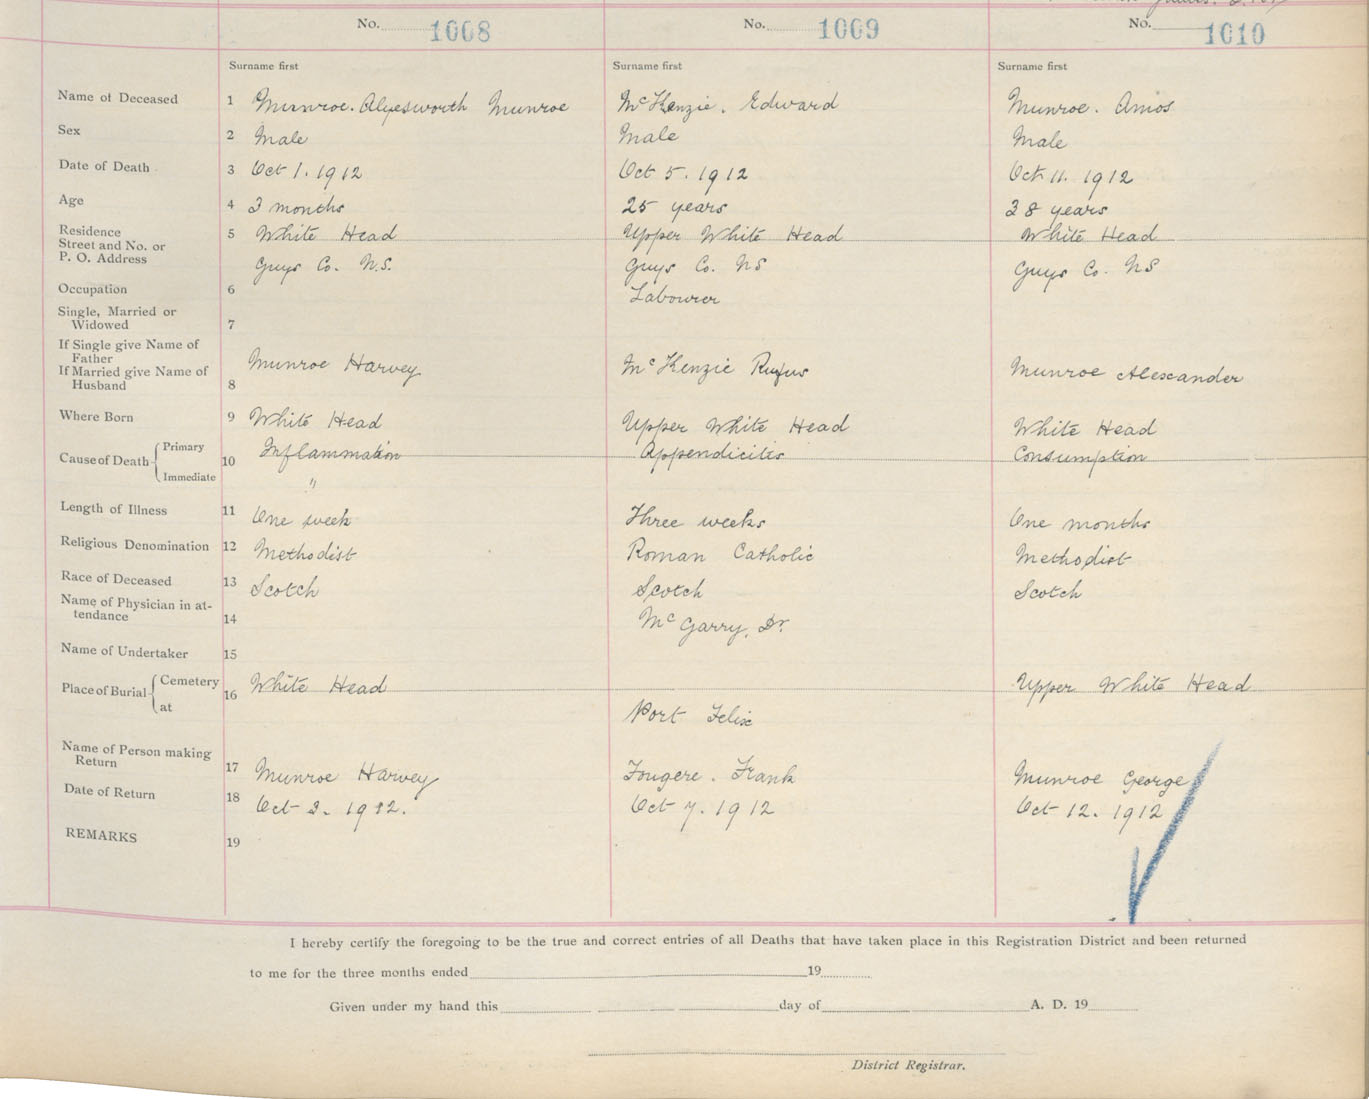 No. 1008 No. 1009 No. 1010
Surname first Surname first Surname first
Name of Deceased 1 Munroe. Alyesworth Munroe McKenzie. Edward Munroe. Amos
Sex 2 Male Male Male
Date of Death 3 Oct 1. 1912 Oct 5. 1912 Oct 11. 1912
Age 4 3 months 25 years 38 years
Residence 5 White Head Upper White Head White Head
Street and No. or
P. O. Address Guys Co. N.S. Guys Co. NS Guys Co. NS
Occupation 6 Labourer
Single, Married or
Widowed 7
If Single give Name of
Father
If Married give Name of Munroe Harvey McKenzie Rufus Munroe Alexander
Husband 8
Where Born 9 White Head Upper White Head White Head
Cause of Death Primary 10 Inflammation Appendicitis Consumption
Immediate "
Length of Illness 11 One week Three weeks One months
Religious Denomination 12 Methodist Roman Catholic Methodist
Race of Deceased 13 Scotch Scotch Scotch
Name of Physician in at-
tendance 14 McGarry, Dr.
Name of Undertaker 15
Place of Burial Cemetery 16 White Head Upper White Head
at Port Felix
Name of Person making
Return 17 Munroe Harvey Fougere. Frank Munroe George
Date of Return 18 Oct 2. 1912. Oct 7. 1912 Oct 12. 1912
REMARKS 19
I hereby certify the foregoing to be the true and correct entries of all Deaths that have taken place in this Registration District and been returned
to me for the three months ended 19
Given under my hand this day of A. D. 19
District Registrar.